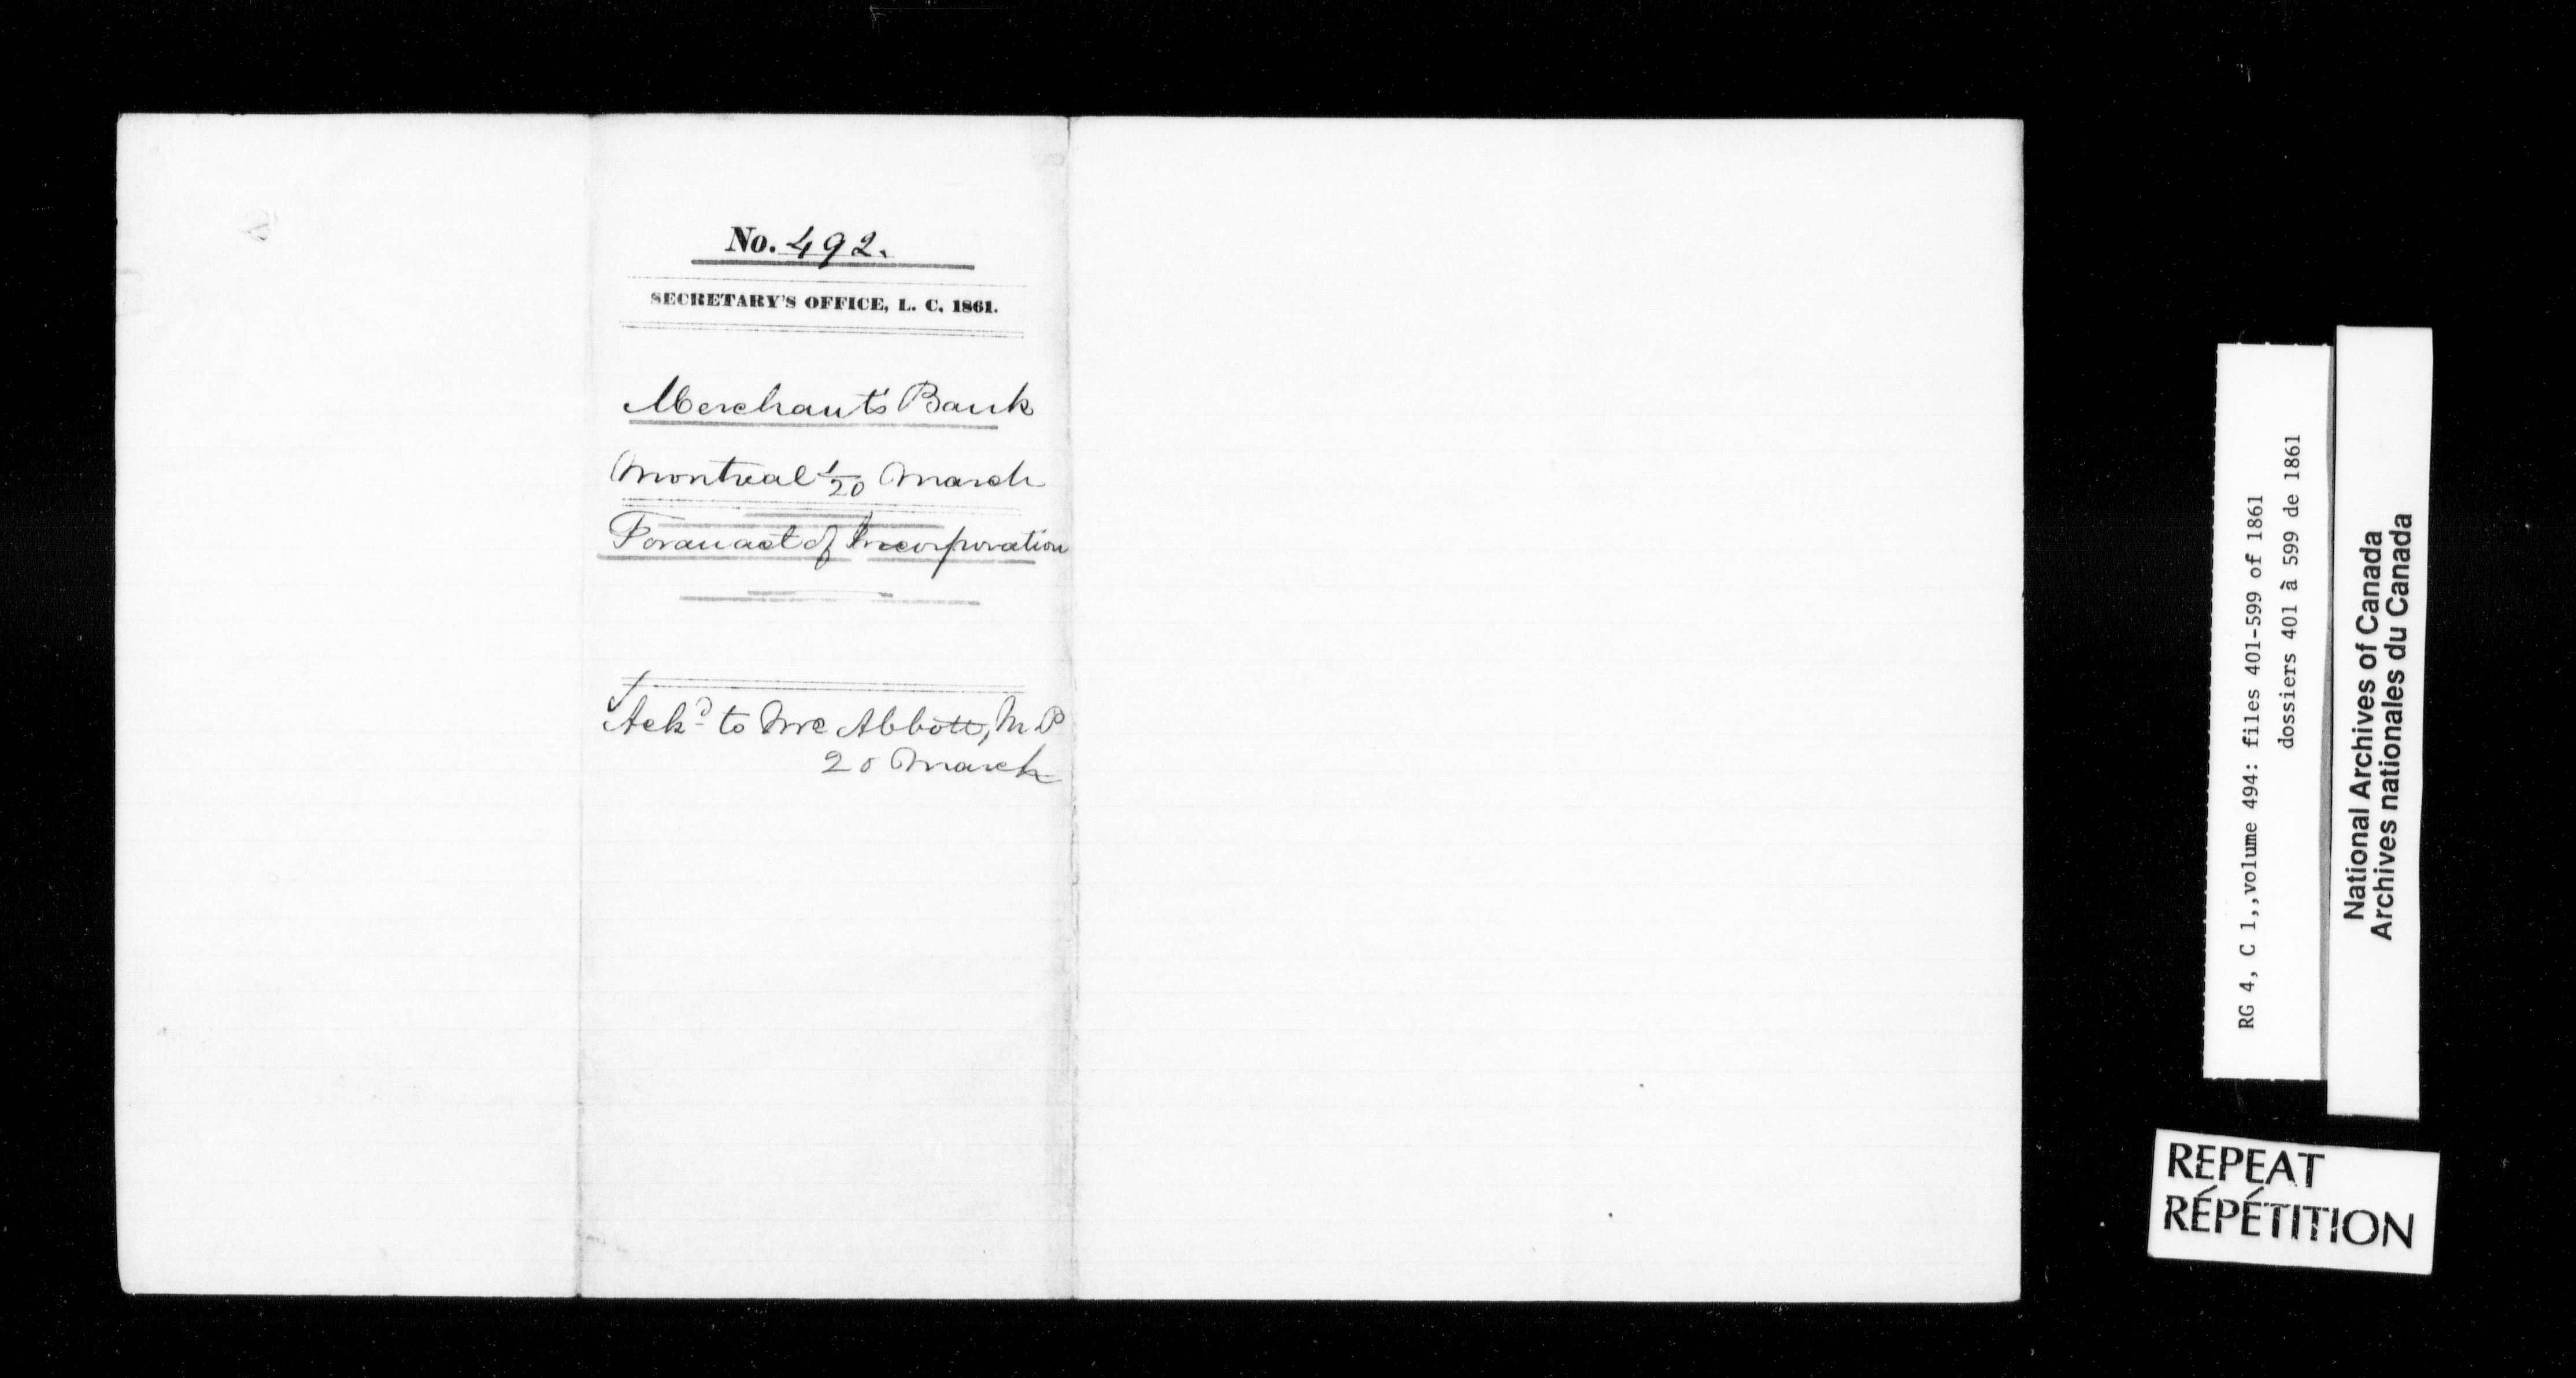 No. 492.
SECRETARY'S OFFICE, L. C. 1861.
Merchants Bank
Montreal 1/20 March
For an act of Incorporation
Ackd to Mr Abbott, M.P
20 March
RG 4, C 1,,volume 494: files 401-599 of 1861
dossiers 401 à 599 de 1861
National Archives of Canada
Archives nationales du Canada
REPEAT
RÉPÉTITION